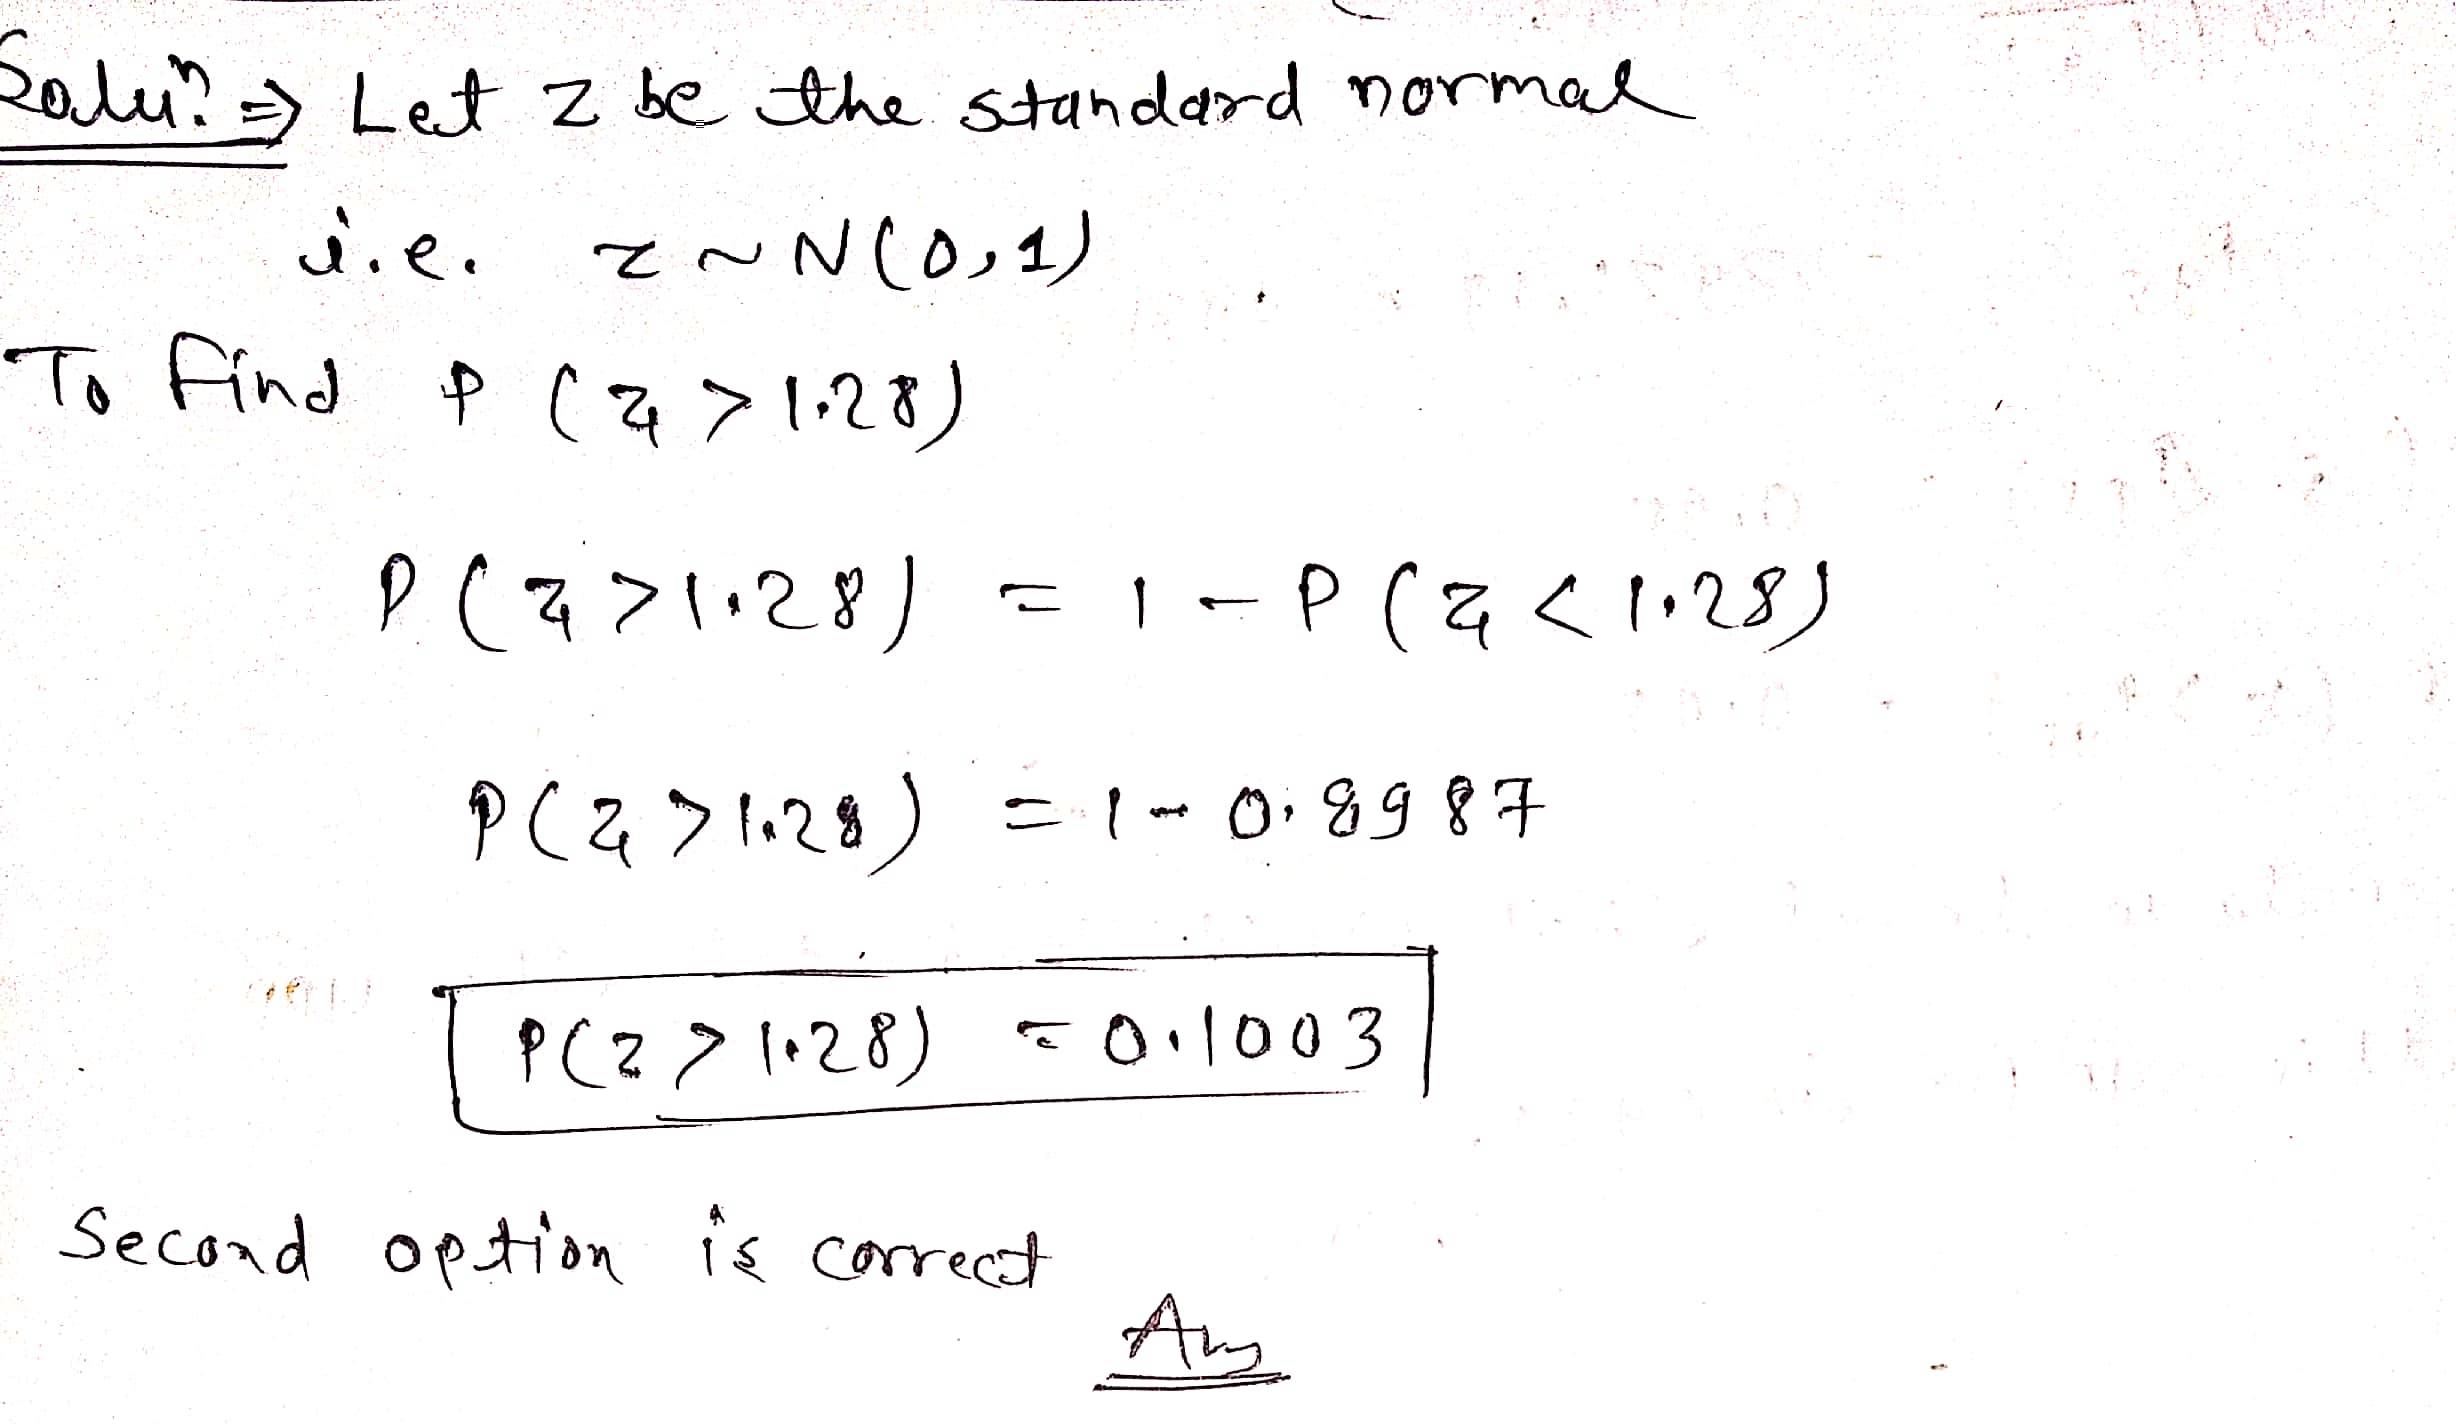 Soluⁿ. ⇒ Let z be the standard normal
i.e. z ~ N(0,1)
To find P (z > 1.28)
P (z > 1.28) = 1 - P (z < 1.28)
P(z > 1.28) = 1 - 0.8987
P(z > 1.28) = 0.1003
Second option is correct
Ans